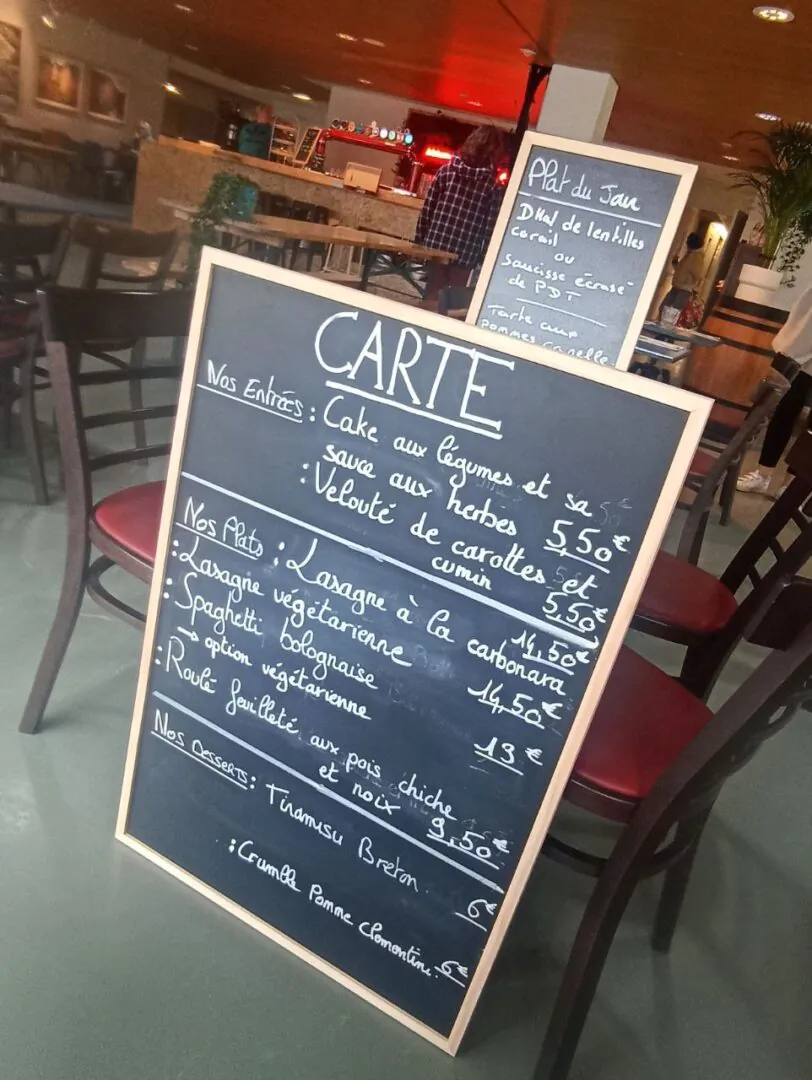 Plat du Jour
DHal de lentilles
corail
ou
Saucisse écrasé
de PDT
Tarte aux
pommes canelle
CARTE
Nos Entrées : Cake aux légumes et sa
sauce aux herbes 5,50€
: Velouté de carottes et
cumin 5,50€
Nos Plats : Lasagne à la carbonara
14,50€
: Lasagne végétarienne 14,50€
: Spaghetti bolognaise
→ option végétarienne 13€
: Roulé feuilleté aux pois chiche
et noix 9,50€
Nos Desserts : Tiramisu Breton 6€
: Crumble Pomme Clementine 6€